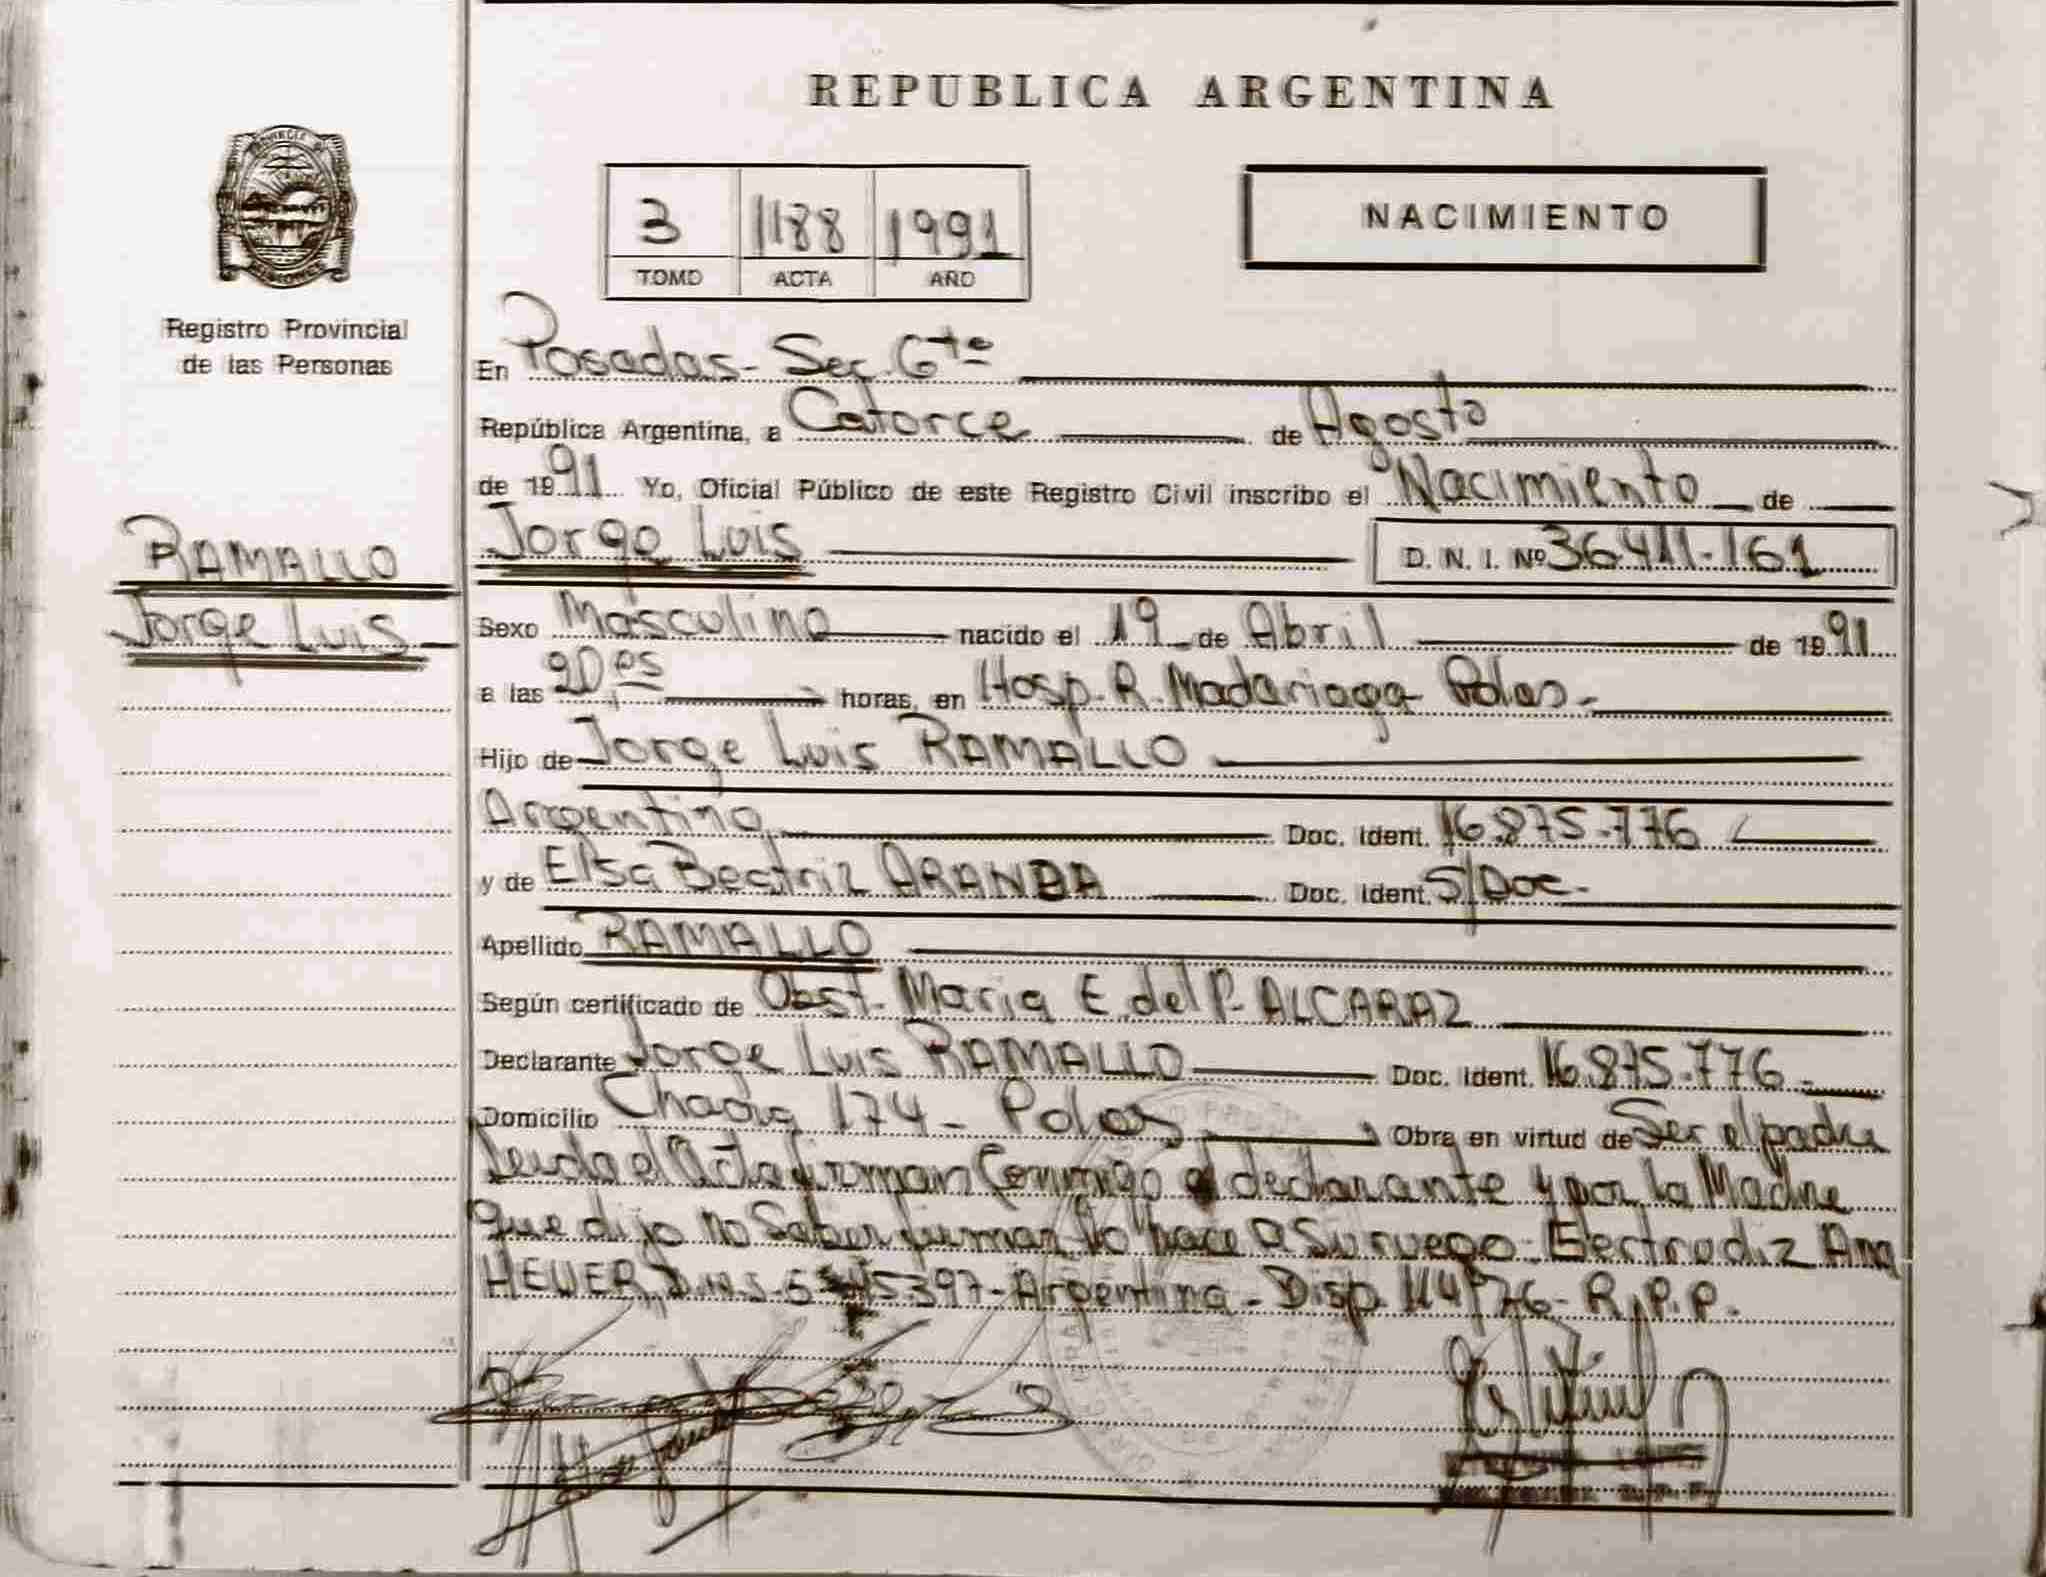 REPUBLICA ARGENTINA
3 1188 1991
TOMO ACTA AÑO
NACIMIENTO
Registro Provincial
de las Personas
RAMALLO
Jorge Luis
En Posadas - Sec. 6ta
República Argentina, a Catorce de Agosto
de 1991 Yo, Oficial Público de este Registro Civil inscribo el Nacimiento de
Jorge Luis D. N. I. Nº 36411-161
Sexo Masculino nacido el 19 de Abril de 1991
a las horas, en Hosp. R. Madariaga Pdas.
Hijo de Jorge Luis RAMALLO
Argentino Doc. Ident. 16.875.776
y de Elsa Beatriz ARANDA Doc. Ident. S/Doc.
Apellido RAMALLO
Según certificado de Obst. Maria E. del P. ALCARAZ
Declarante Jorge Luis RAMALLO Doc. Ident. 16.875.776
Domicilio 174 - Pdas Obra en virtud de Ser el padre
Leida el Acta firman Conmigo el declarante y por la Madre
que dijo no Saber firmar lo hace a Su ruego: Gertrudiz Ana
Argentina - Disp. 114/76 - R.P.P.